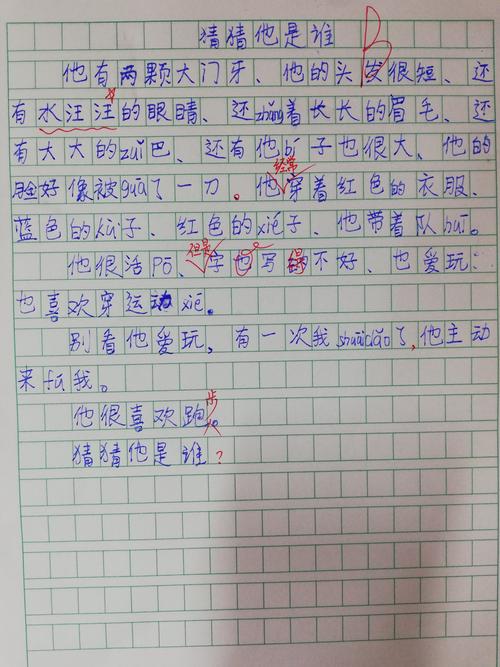 猜猜他是谁 B
他有两颗大门牙、他的头发很短、还
有水汪汪的眼睛、还zhǎng着长长的眉毛、还
有大大的zuǐ巴、还有他bí子也很大、他的
脸好像被guā了一刀。他经常穿着红色的衣服、
蓝色的kù子、红色的xié子、他带着队huī。
他很活pō、但是字也写得不好、也爱玩:
也喜欢穿运动xié。
别看他爱玩，有一次我shuāidǎo了，他主动
来fú我。
他很喜欢跑步。
猜猜他是谁？